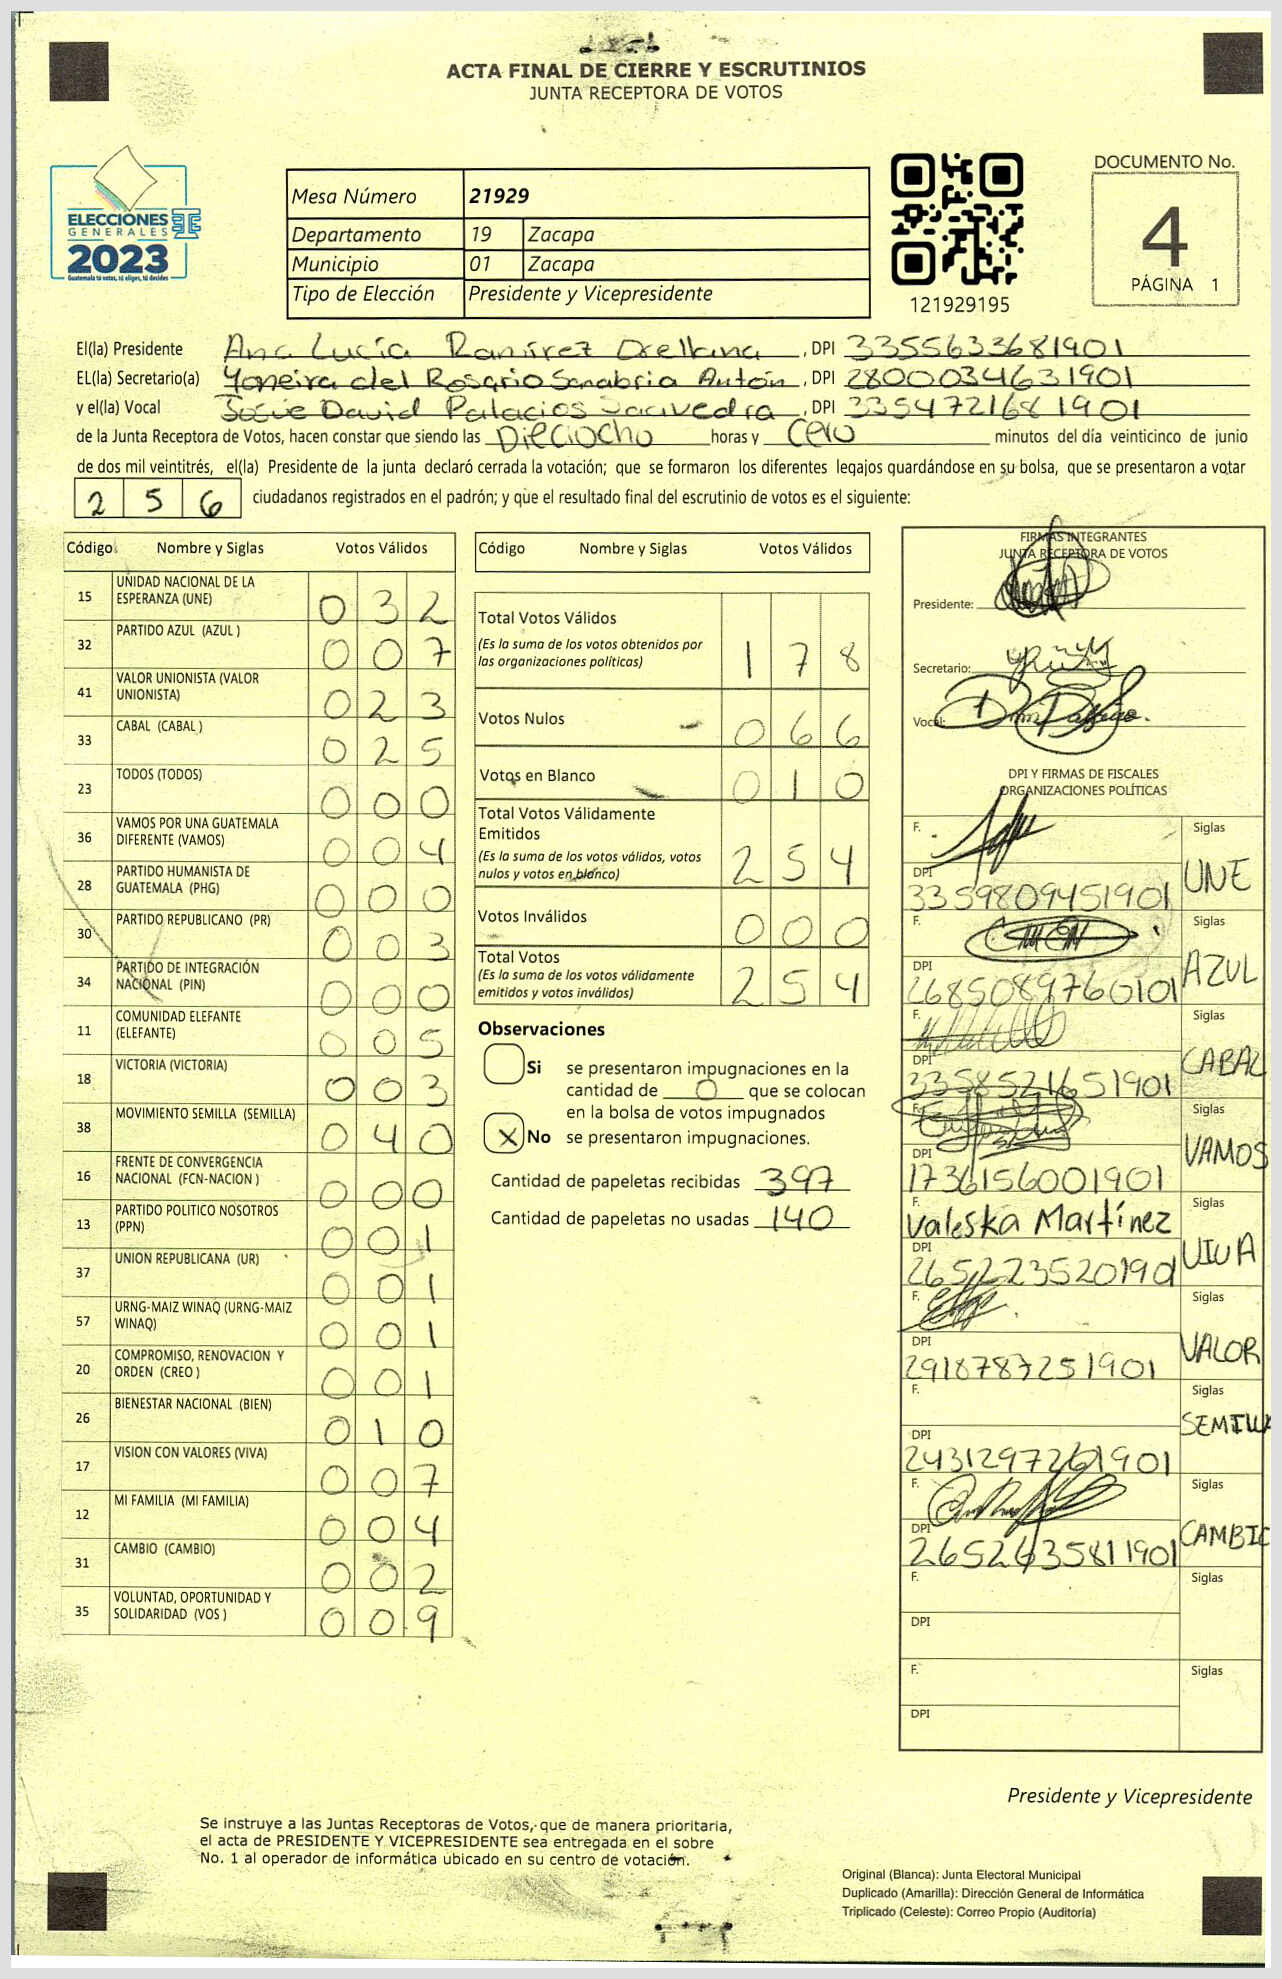 ACTA FINAL DE CIERRE Y ESCRUTINIOS
JUNTA RECEPTORA DE VOTOS
ELECCIONES
GENERALES
2023
Guatemala tú votas, tú eliges, tú decides
Mesa Número 21929
Departamento 19 Zacapa
Municipio 01 Zacapa
Tipo de Elección Presidente y Vicepresidente
121929195
DOCUMENTO No.
4
PÁGINA 1
El(la) Presidente Ana Lucía Ramírez Orellana, DPI 3355633681901
EL(la) Secretario(a) Yoneira del Rosario Sanabria Antón, DPI 2800034631901
y el(la) Vocal Josue David Palacios Saavedra, DPI 3354721681901
de la Junta Receptora de Votos, hacen constar que siendo las Dieciocho horas y Cero minutos del día veinticinco de junio
de dos mil veintitrés, el(la) Presidente de la junta declaró cerrada la votación; que se formaron los diferentes legajos guardándose en su bolsa, que se presentaron a votar
256 ciudadanos registrados en el padrón; y que el resultado final del escrutinio de votos es el siguiente:
Código Nombre y Siglas Votos Válidos
15 UNIDAD NACIONAL DE LA ESPERANZA (UNE) 032
32 PARTIDO AZUL (AZUL ) 007
41 VALOR UNIONISTA (VALOR UNIONISTA) 023
33 CABAL (CABAL ) 025
23 TODOS (TODOS) 000
36 VAMOS POR UNA GUATEMALA DIFERENTE (VAMOS) 004
28 PARTIDO HUMANISTA DE GUATEMALA (PHG) 000
30 PARTIDO REPUBLICANO (PR) 003
34 PARTIDO DE INTEGRACIÓN NACIONAL (PIN) 000
11 COMUNIDAD ELEFANTE (ELEFANTE) 005
18 VICTORIA (VICTORIA) 003
38 MOVIMIENTO SEMILLA (SEMILLA) 040
16 FRENTE DE CONVERGENCIA NACIONAL (FCN-NACION ) 000
13 PARTIDO POLITICO NOSOTROS (PPN) 001
37 UNION REPUBLICANA (UR) 001
57 URNG-MAIZ WINAQ (URNG-MAIZ WINAQ) 001
20 COMPROMISO, RENOVACION Y ORDEN (CREO ) 001
26 BIENESTAR NACIONAL (BIEN) 010
17 VISION CON VALORES (VIVA) 007
12 MI FAMILIA (MI FAMILIA) 004
31 CAMBIO (CAMBIO) 002
35 VOLUNTAD, OPORTUNIDAD Y SOLIDARIDAD (VOS ) 009
Código Nombre y Siglas Votos Válidos
Total Votos Válidos 178
(Es la suma de los votos obtenidos por
las organizaciones políticas)
Votos Nulos 066
Votos en Blanco 010
Total Votos Válidamente
Emitidos 254
(Es la suma de los votos válidos, votos
nulos y votos en blanco)
Votos Inválidos 000
Total Votos 254
(Es la suma de los votos válidamente
emitidos y votos inválidos)
Observaciones
Si se presentaron impugnaciones en la
cantidad de 0 que se colocan
en la bolsa de votos impugnados
X No se presentaron impugnaciones.
Cantidad de papeletas recibidas 397
Cantidad de papeletas no usadas 140
FIRMAS INTEGRANTES
JUNTA RECEPTORA DE VOTOS
Presidente:
Secretario:
Vocal:
DPI Y FIRMAS DE FISCALES
ORGANIZACIONES POLÍTICAS
F. Siglas
DPI 3359809451901 UNE
F. Siglas
DPI 2685089760101 AZUL
F. Siglas
DPI 3358521651901 CABAL
F. Siglas
DPI 1736156001901 VAMOS
F. Valeska Martínez Siglas
DPI 265222352019 VIVA
F. Siglas
DPI 2918787251901 VALOR
F. Siglas
DPI 2431297261901 SEMILLA
F. Siglas
DPI 2652635811901 CAMBIO
F. Siglas
DPI
F. Siglas
DPI
Presidente y Vicepresidente
Se instruye a las Juntas Receptoras de Votos, que de manera prioritaria,
el acta de PRESIDENTE Y VICEPRESIDENTE sea entregada en el sobre
No. 1 al operador de informática ubicado en su centro de votación.
Original (Blanca): Junta Electoral Municipal
Duplicado (Amarilla): Dirección General de Informática
Triplicado (Celeste): Correo Propio (Auditoría)